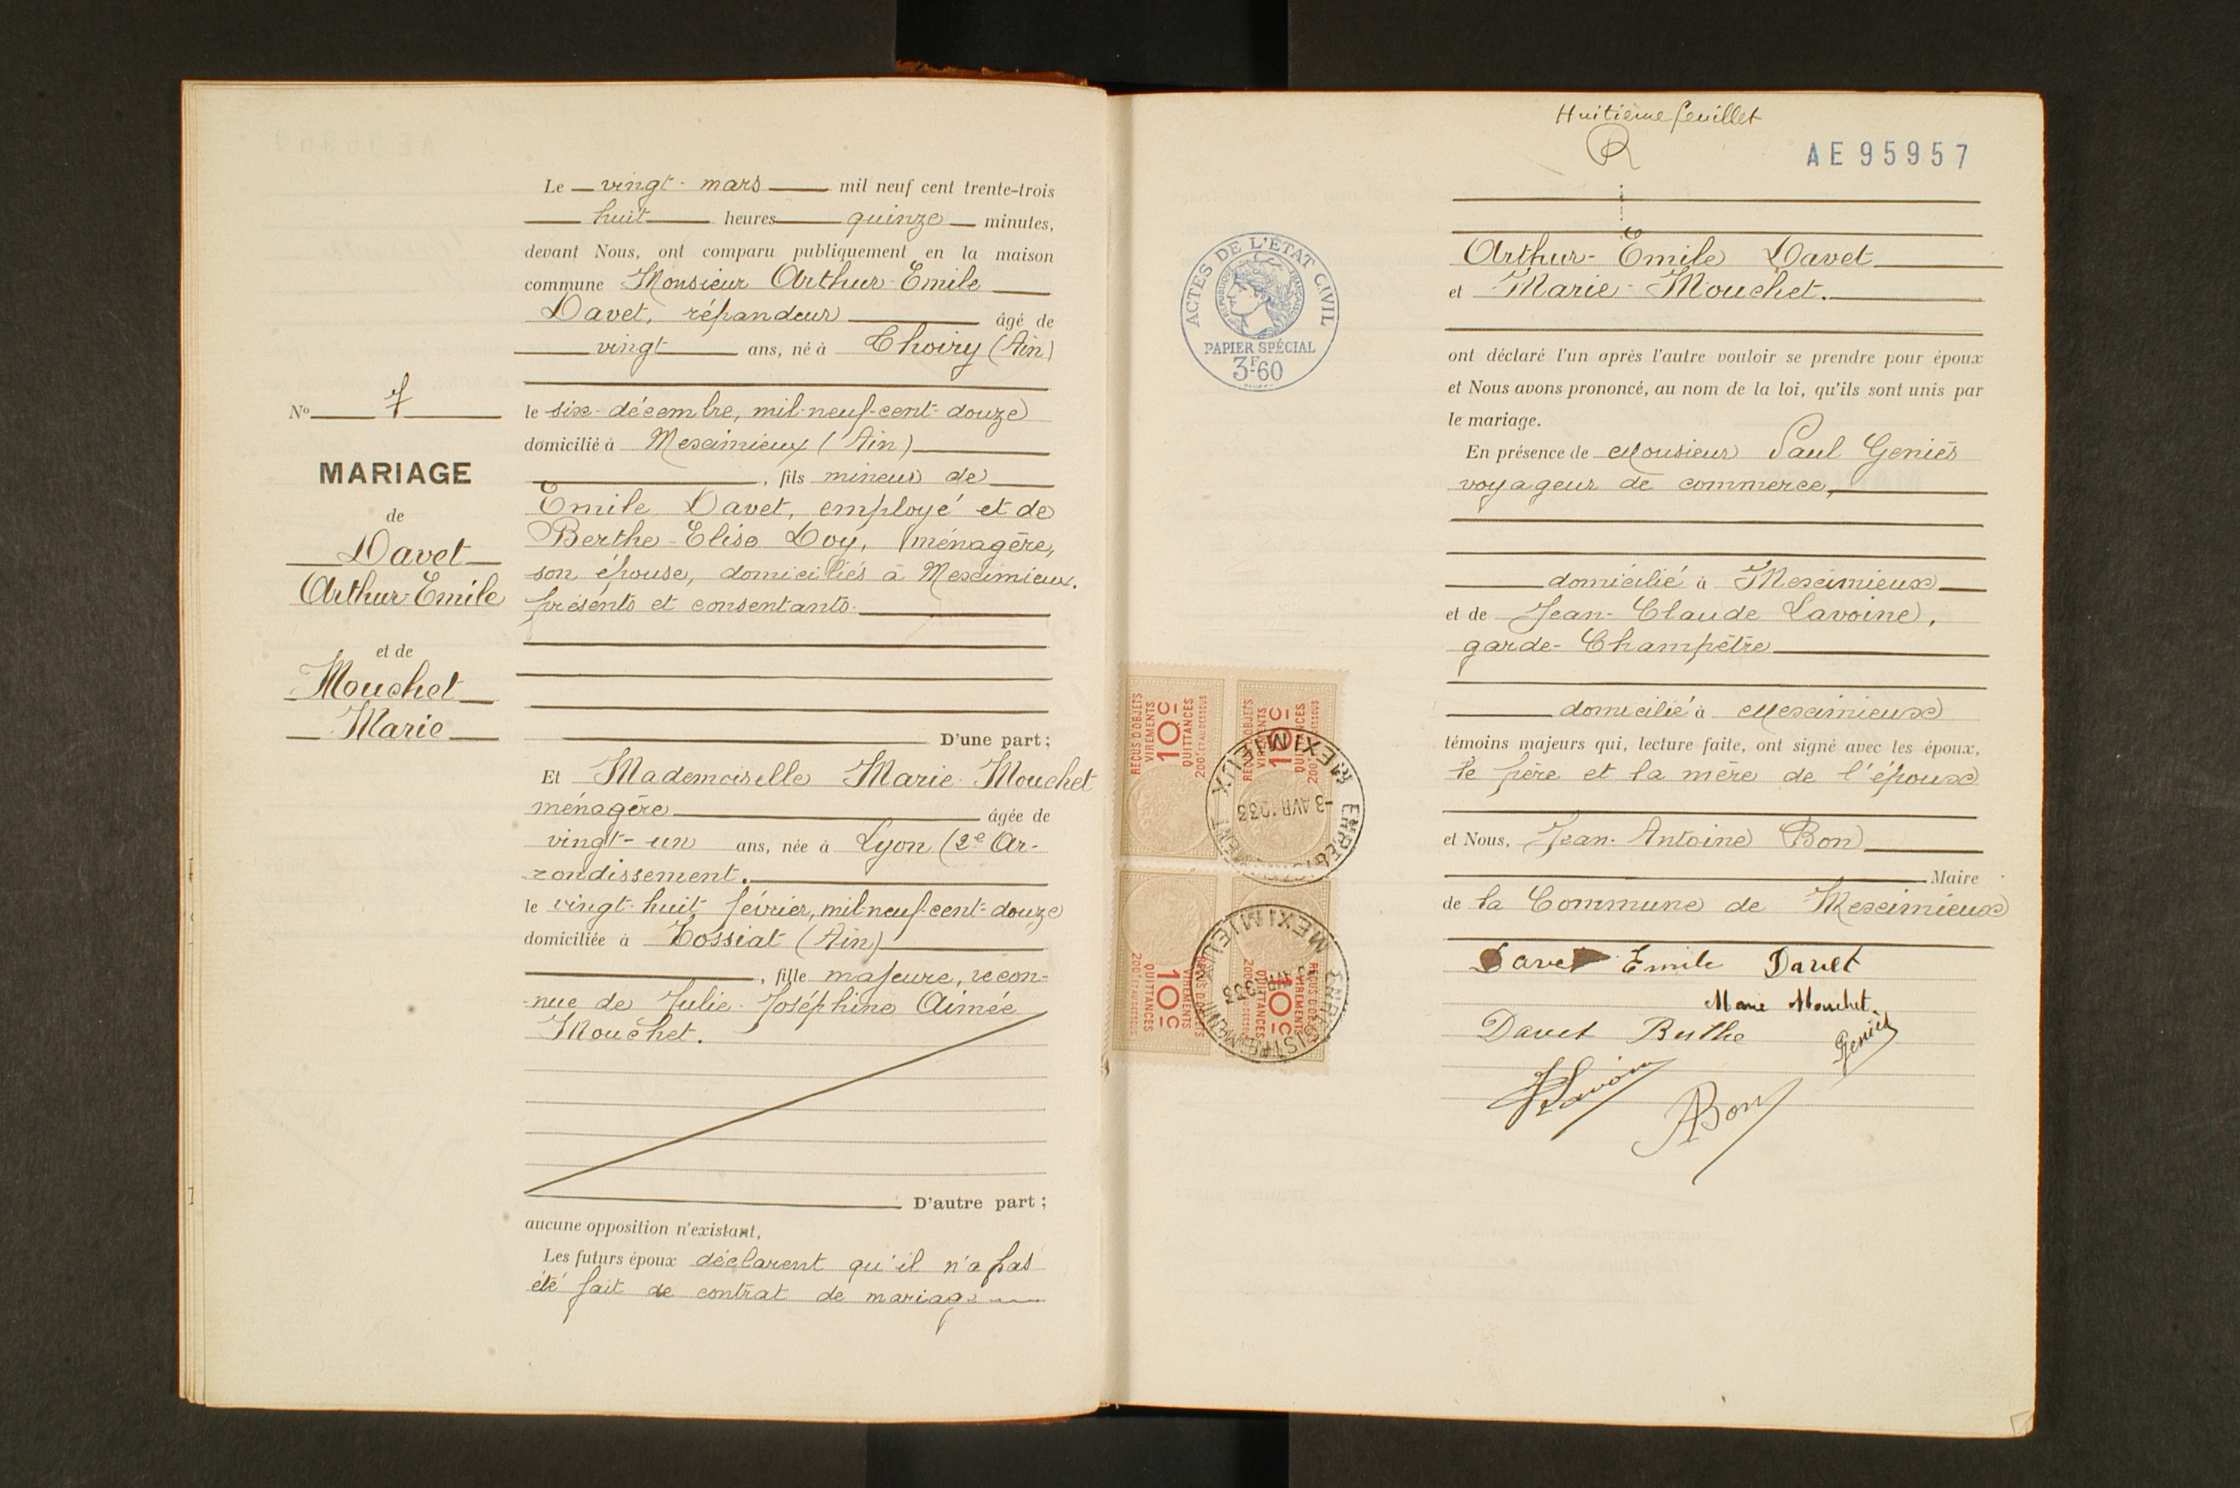 Le vingt-mars mil neuf cent trente-trois
huit heures quinze minutes,
devant Nous, ont comparu publiquement en la maison
commune Monsieur Arthur-Emile
Davet, répandeur âgé de
vingt ans, né à Thoiry (Ain)
le six-décembre, mil-neuf-cent-douze
domicilié à Meximieux (Ain)
, fils mineur de
Emile Davet, employé et de
Berthe-Elise Doy, ménagère,
son épouse, domiciliés à Meximieux.
présents et consentants.
D'une part ;
Et Mademoiselle Marie Mouchet
ménagère âgée de
vingt-un ans, née à Lyon (2e Ar-
rondissement.
le vingt-huit février, mil-neuf-cent-douze
domiciliée à Tossiat (Ain)
, fille majeure, recon-
-nue de Julie-Joséphine Aimée
Mouchet.
D'autre part ;
aucune opposition n'existant,
Les futurs époux déclarent qu'il n'a pas
été fait de contrat de mariage
No 7
MARIAGE
de
Davet
Arthur-Emile
et de
Mouchet
Marie
Huitième feuillet
AE95957
ACTES DE L'ÉTAT CIVIL
PAPIER SPÉCIAL
3F.60
Arthur-Emile Davet
et Marie-Mouchet.
ont déclaré l'un après l'autre vouloir se prendre pour époux
et Nous avons prononcé, au nom de la loi, qu'ils sont unis par
le mariage.
En présence de Monsieur Paul Geniès
voyageur de commerce,
domicilié à Meximieux
et de Jean-Claude Lavoine,
garde-Champêtre
domicilié à Meximieux
témoins majeurs qui, lecture faite, ont signé avec les époux,
le père et la mère de l'époux
et Nous, Jean-Antoine Bon
Maire
de la Commune de Meximieux
Davet Emile Davet
Marie Mouchet
Davet Berthe Geniès
Lavoine
ABon
REÇUS D'OBJETS
VIREMENTS
10c
QUITTANCES
200F ET AU DESSOUS
REÇUS D'OBJETS
VIREMENTS
10c
QUITTANCES
ENREGISTREMENT
MEXIMIEUX
-3 AVR 1933
VIREMENTS
10c
QUITTANCES
10c
QUITTANCES
ENREGISTREMENT
MEXIMIEUX